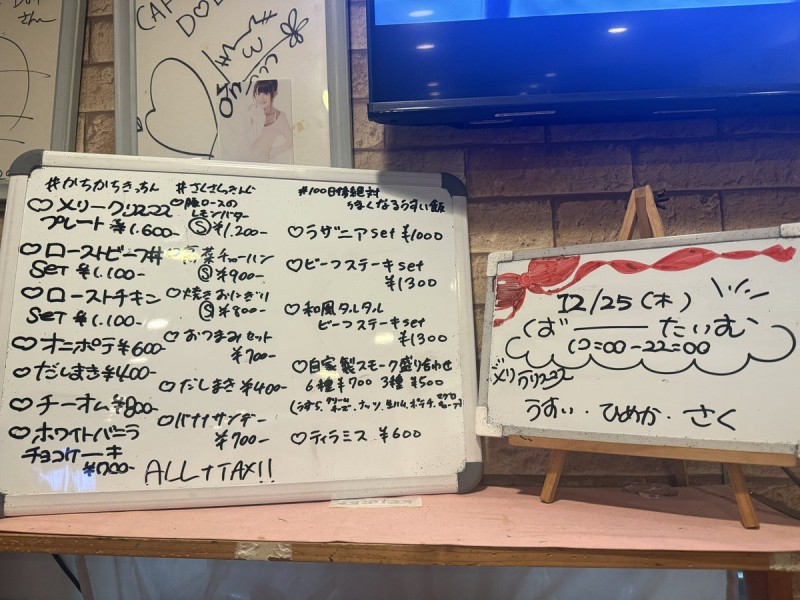 CAF
DO
#かちかちきっちん
♡メリークリスマス
プレート ¥1.600-
♡ローストビーフ丼
SET ¥1.100-
♡ローストチキン
SET ¥1.100-
♡オニポテ¥600-
♡だしまき¥400-
♡チーオム¥800-
♡ホワイトバニラ
チョコケーキ
¥700-
♡豚ロースの
レモンバター
Ⓢ¥1.200-
チャーハン
Ⓢ¥900-
♡焼きおにぎり
Ⓢ¥800-
♡おつまみセット
¥700-
♡だしまき ¥400-
♡バナナサンデー
¥700-
ALL+TAX!!
#100日後絶対
うまくなるうすい飯
♡ラザニアset ¥1000
♡ビーフステーキset
¥1300
♡和風タルタル
ビーフステーキset
¥1300
♡自家製スモーク盛り合わせ
6種¥700 3種¥500
♡ティラミス ¥600
12/25(木)
くば――たいむ
17:00-22:00
メリクリスマス
うすい・ひめか・さく